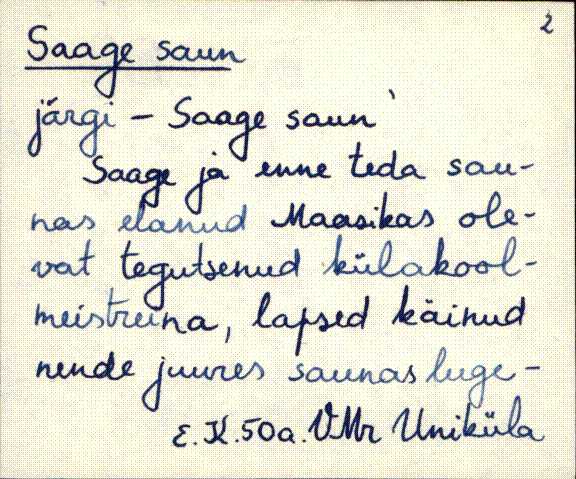 2
Saage saun
järgi – Saage saun'
Saage ja enne teda sau-
nas elanud Maasikas ole-
vat tegutsenud külakool-
meistreina, lapsed käinud
nende juures saunas luge-
E.K. 50a. VMr Uniküla